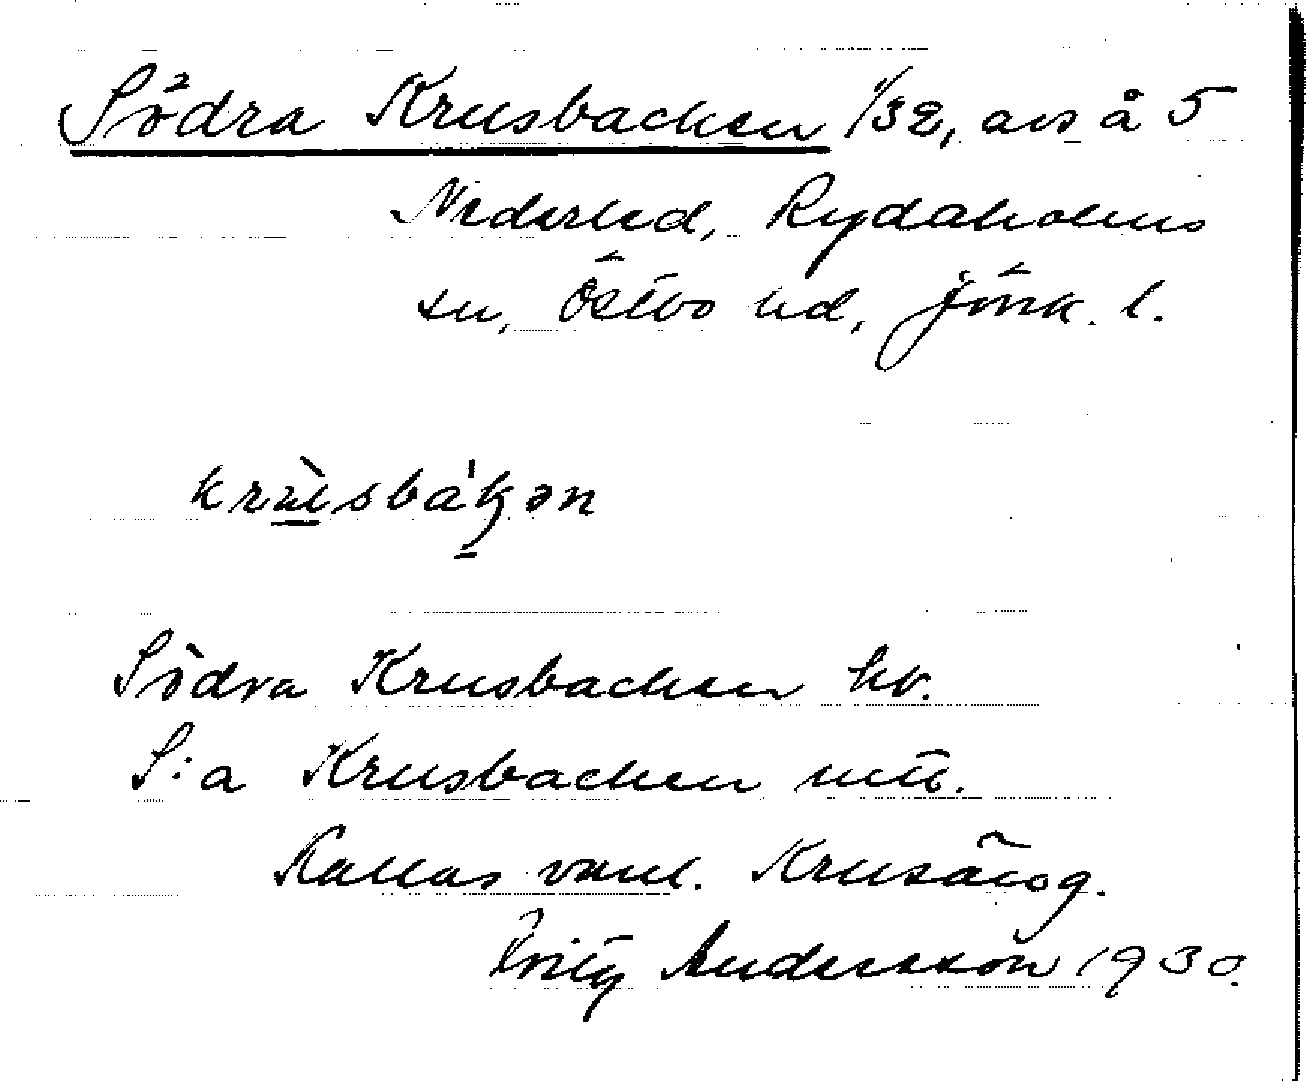 Södra Krusbacken 1/32, avs å 5
Nederled, Rydaholms
sn, Östbo hd, Jönk. l.
krusbakən
Södra Krusbacken hv.
S:a Krusbacken mtl.
Kallas vanl. Krusäng.
Fritz Andersson 1930.